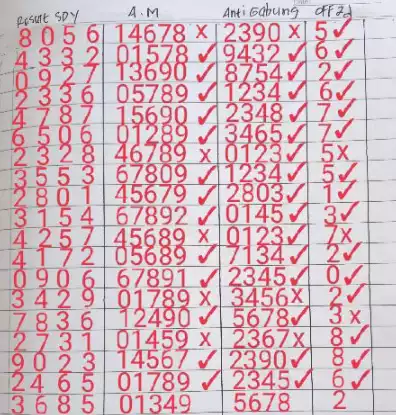 Result SDY A.M Anti Gabung Off 2d
8 0 5 6 14678 x 2390 x 5 ✓
4 3 3 2 01578 ✓ 9432 ✓ 6 ✓
0 9 2 7 13690 ✓ 8754 ✓ 2 ✓
2 3 3 6 05789 ✓ 1234 ✓ 6 ✓
4 7 8 7 15690 ✓ 2348 ✓ 7 ✓
6 5 0 6 01289 ✓ 3465 ✓ 7 ✓
2 3 2 8 46789 x 0123 ✓ 5 x
3 5 5 3 67809 ✓ 1234 ✓ 5 ✓
2 8 0 1 45679 ✓ 2803 ✓ 1 ✓
3 1 5 4 67892 ✓ 0145 ✓ 3 ✓
4 2 5 7 45689 x 0123 ✓ 7 x
4 1 7 2 05689 ✓ 7134 ✓ 2 ✓
0 9 0 6 67891 ✓ 2345 ✓ 0 ✓
3 4 2 9 01789 x 3456 x 2 ✓
7 8 3 6 12490 ✓ 5678 ✓ 3 x
2 7 3 1 01459 x 2367 x 8 ✓
9 0 2 3 14567 ✓ 2390 ✓ 8 ✓
2 4 6 5 01789 ✓ 2345 ✓ 6 ✓
3 6 8 5 01349 5678 2